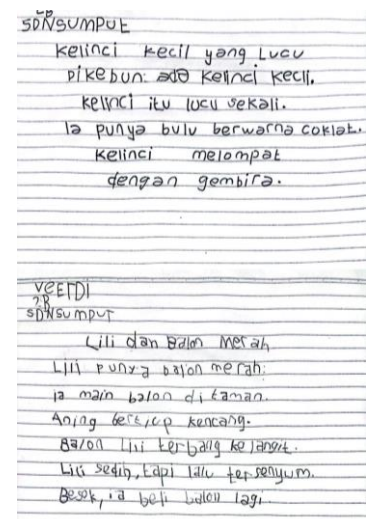 SDNSUMPUt
kelinci kecil yang Lucu
Dikebun. ada kelinci kecil.
kelinci itu lucu sekali.
Ia punya bulu berwarna coklat.
kelinci melompat
dengan gembira.
VEEIDI
2.B
SDNSUMPUT
Lili dan Balon Merah
Lili punya balon merah.
ia main balon di taman.
Aning bertiup kencang.
Balon Lili terbang ke langit.
Lili sedih, tapi lalu tersenyum.
Besok, ia beli balon lagi.